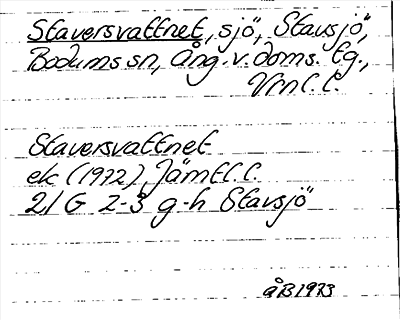 Staversvattnet, sjö, Stavsjö,
Bodums sn, Ång. v. doms. tg.,
Vrnl. l.
Staversvattnet
ek (1972) Jämtl. l.
21 G 2-3 g-h Stavsjö
ÅB 1973